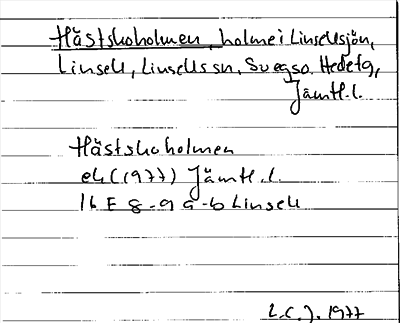 Hästskoholmen, holme i Linsellsjön,
Linsell, Linsells sn, Svegs o. Hedetg,
Jämtl. l.
Hästskoholmen
ek (1977) Jämtl. l.
16 E 8-9 a-b Linsell
L.C.J. 1977